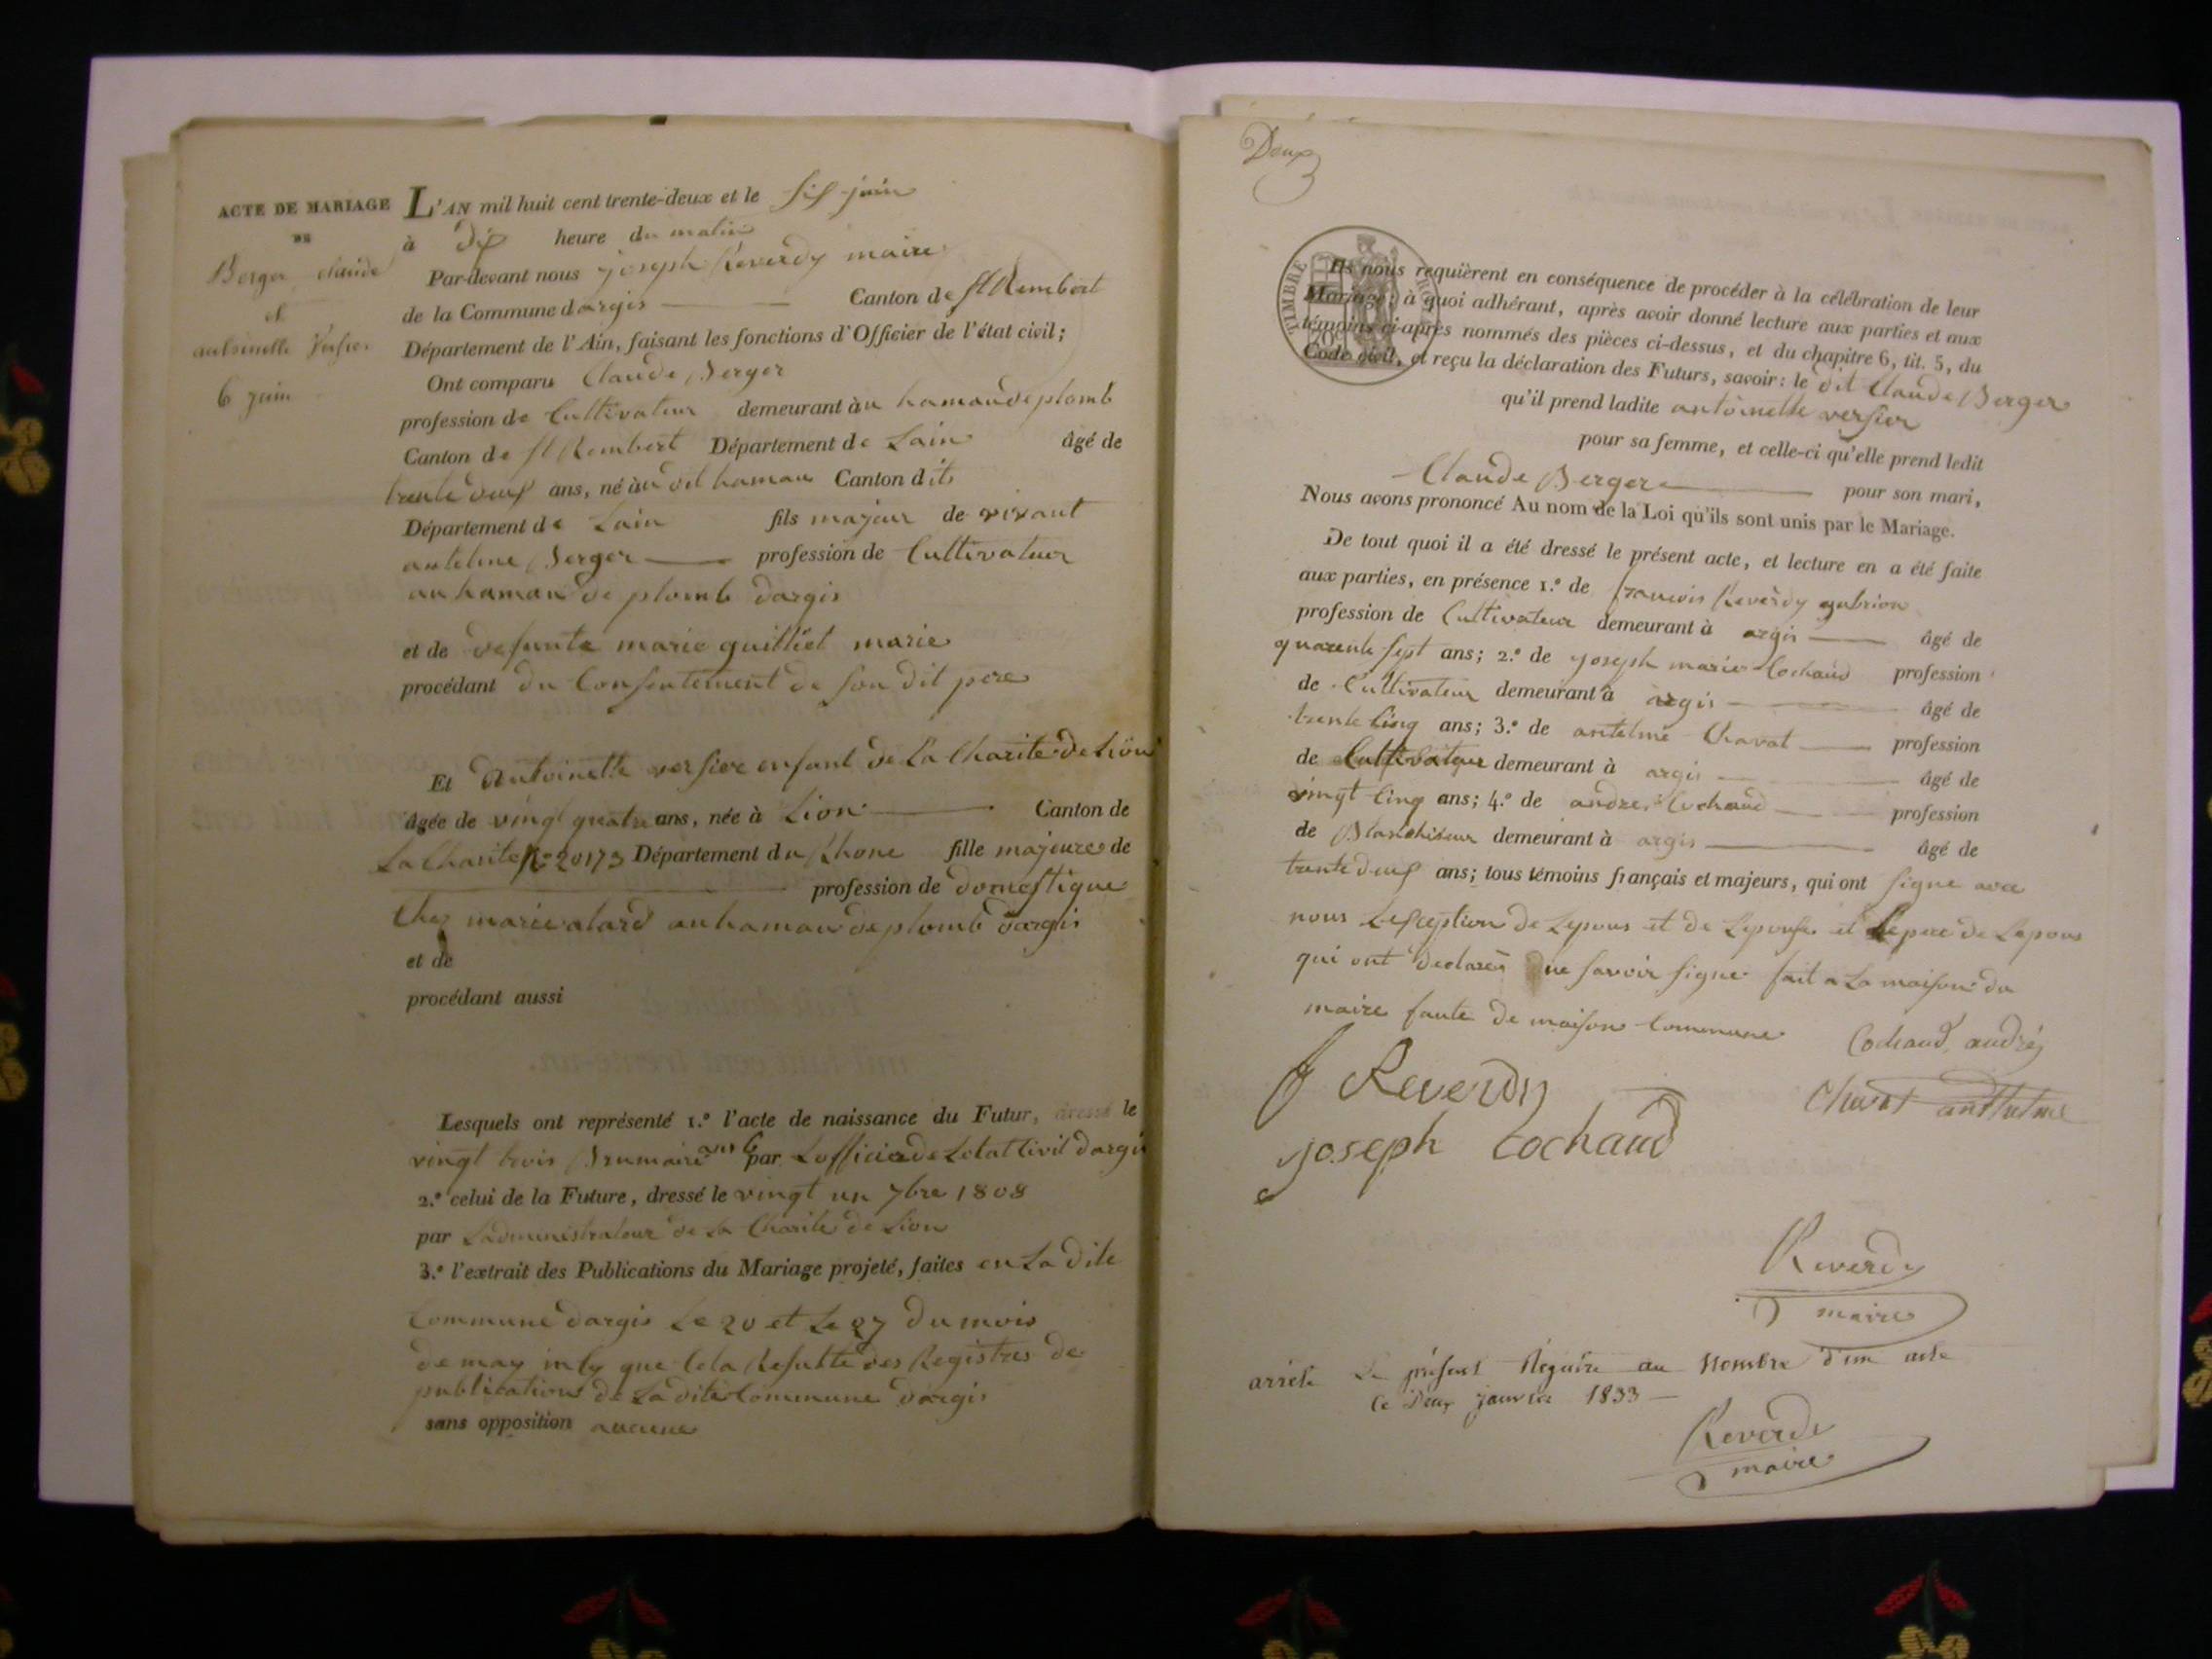 ACTE DE MARIAGE
DE
Berger claude
et
antoinette versier
6 juin
L'AN mil huit cent trente-deux et le six juin
à dix heure du matin
Par-devant nous joseph Reverdy maire
de la Commune d argis Canton de St Rembert
Département de l'Ain, faisant les fonctions d'Officier de l'état civil;
Ont comparu Claude Berger
profession de Cultivateur demeurant àu hamau de plomb
Canton de St Rembert Département de Lain âgé de
trente deux ans, né àu dit hamau Canton dit
Département de Lain fils majeur de vivant
antelme Berger profession de Cultivateur
au hamau de plomb dargis
et de defunte marie guilliet marie
procédant du Consentement de son dit pere
Et Antoinette versier enfant de La Charite de Lion
âgée de vingt quatre ans, née à Lion Canton de
La Charite No 20173 Département du Rhone fille majeure de
profession de domestique
Chez marie alard au hamau de plomb dargis
et de
procédant aussi
Lesquels ont représenté 1.º l'acte de naissance du Futur, dressé le
vingt trois Brumaire an 6 par Lofficier de Letat Civil dargis
2.º celui de la Future, dressé le vingt un 7bre 1808
par Ladministrateur de La Charite de Lion
3.º l'extrait des Publications du Mariage projeté, faites en La dite
Commune dargis Le 20 et Le 27 du mois
de may que Cela Resulte des Registres de
publication de La dite Commune dargis
sans opposition aucune
Deux
TIMBRE ROYAL
Ils nous requièrent en conséquence de procéder à la célébration de leur
Mariage; à quoi adhérant, après avoir donné lecture aux parties et aux
témoins ci-après nommés des pièces ci-dessus, et du chapitre 6, tit. 5, du
Code civil, et reçu la déclaration des Futurs, savoir: le dit Claude Berger
qu'il prend ladite antoinette versier
pour sa femme, et celle-ci qu'elle prend ledit
Claude Berger pour son mari,
Nous avons prononcé Au nom de la Loi qu'ils sont unis par le Mariage.
De tout quoi il a été dressé le présent acte, et lecture en a été faite
aux parties, en présence 1.º de francois Reverdy gubrion
profession de Cultivateur demeurant à argis âgé de
quarente sept ans; 2.º de joseph marie Cochaud profession
de Cultivateur demeurant à argis âgé de
trente cinq ans; 3.º de antelme Chavat profession
de Cultivateur demeurant à argis âgé de
vingt cinq ans; 4.º de andre Cochaud profession
de Blanchiseur demeurant à argis âgé de
trente deux ans; tous témoins français et majeurs, qui ont signe avec
nous Lexception de Lepous et de Lepouse et Le pere de Lepous
qui ont declarés ne savoir signe fait a La maison du
maire faute de maison Commune
Cochaud andré
f Reverdy
Chavat anthelme
joseph Cochaud
Reverdy
maire
arrété Le présent Régistre au Nombre d'un acte
Ce Deux janvier 1833
Reverdy
maire